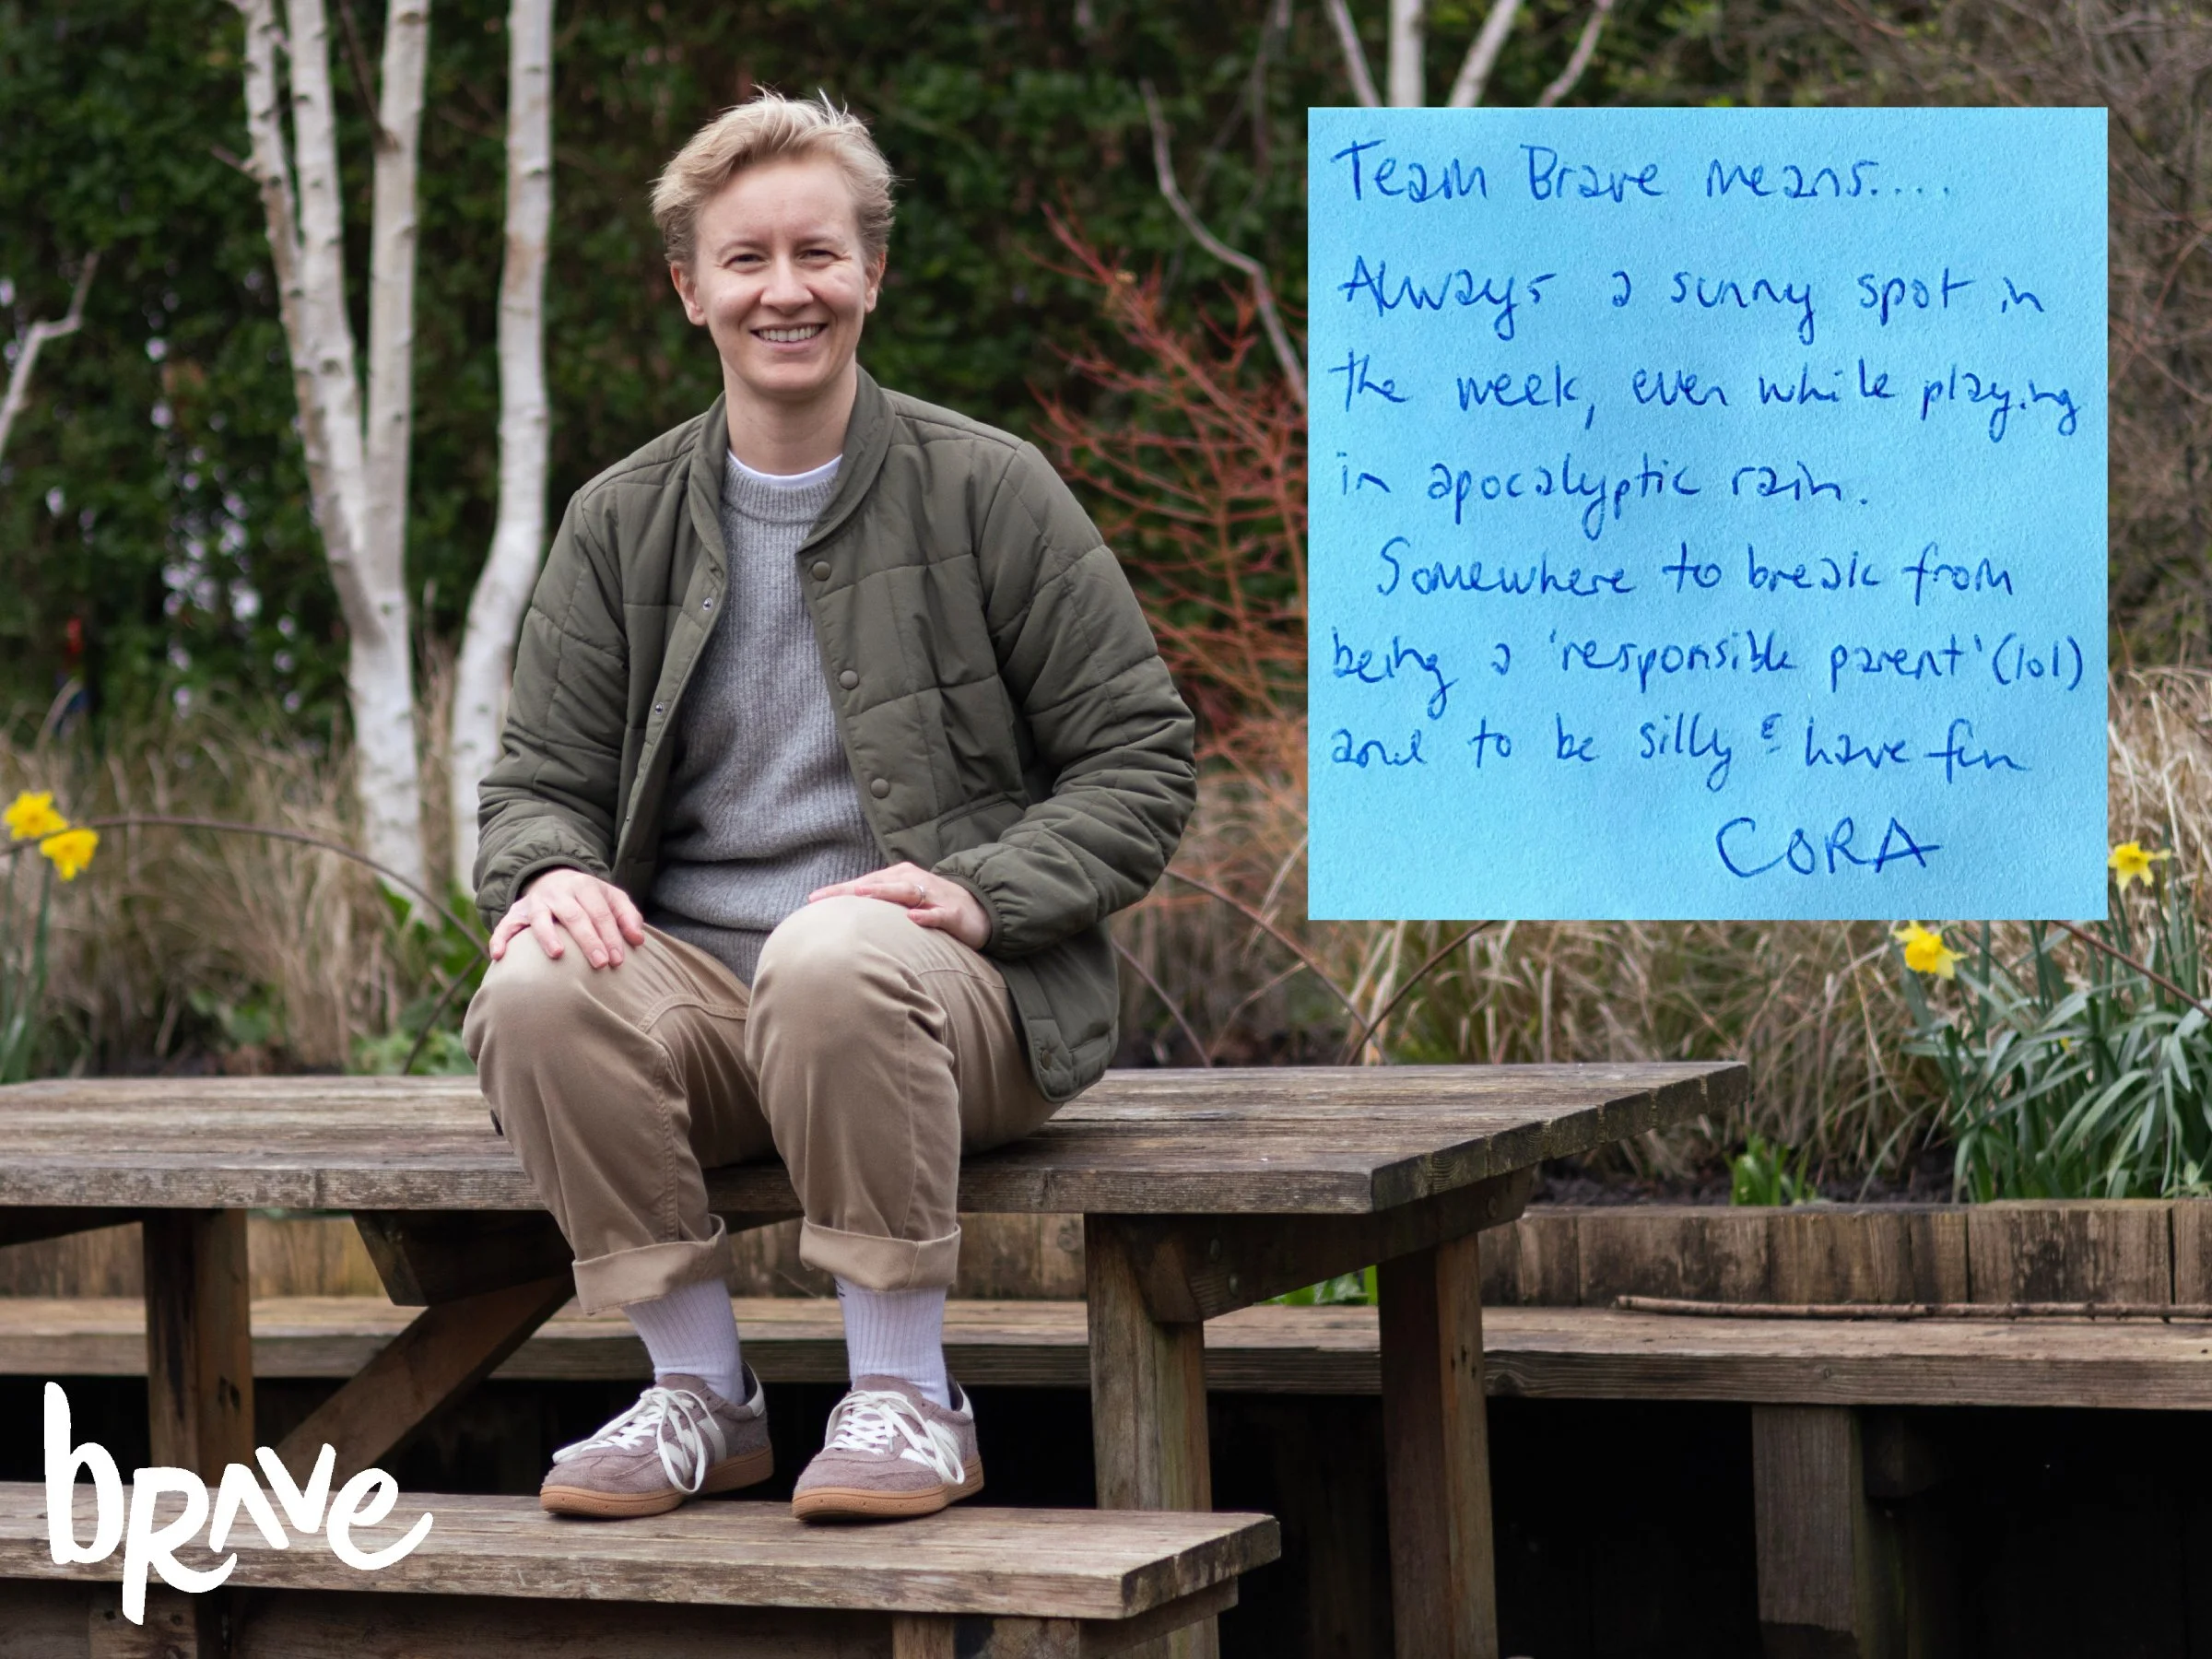 Team Brave means....
Always a sunny spot in
the week, even while playing
in apocalyptic rain.
Somewhere to break from
being a 'responsible parent' (lol)
and to be silly & have fun
CORA
bRAve